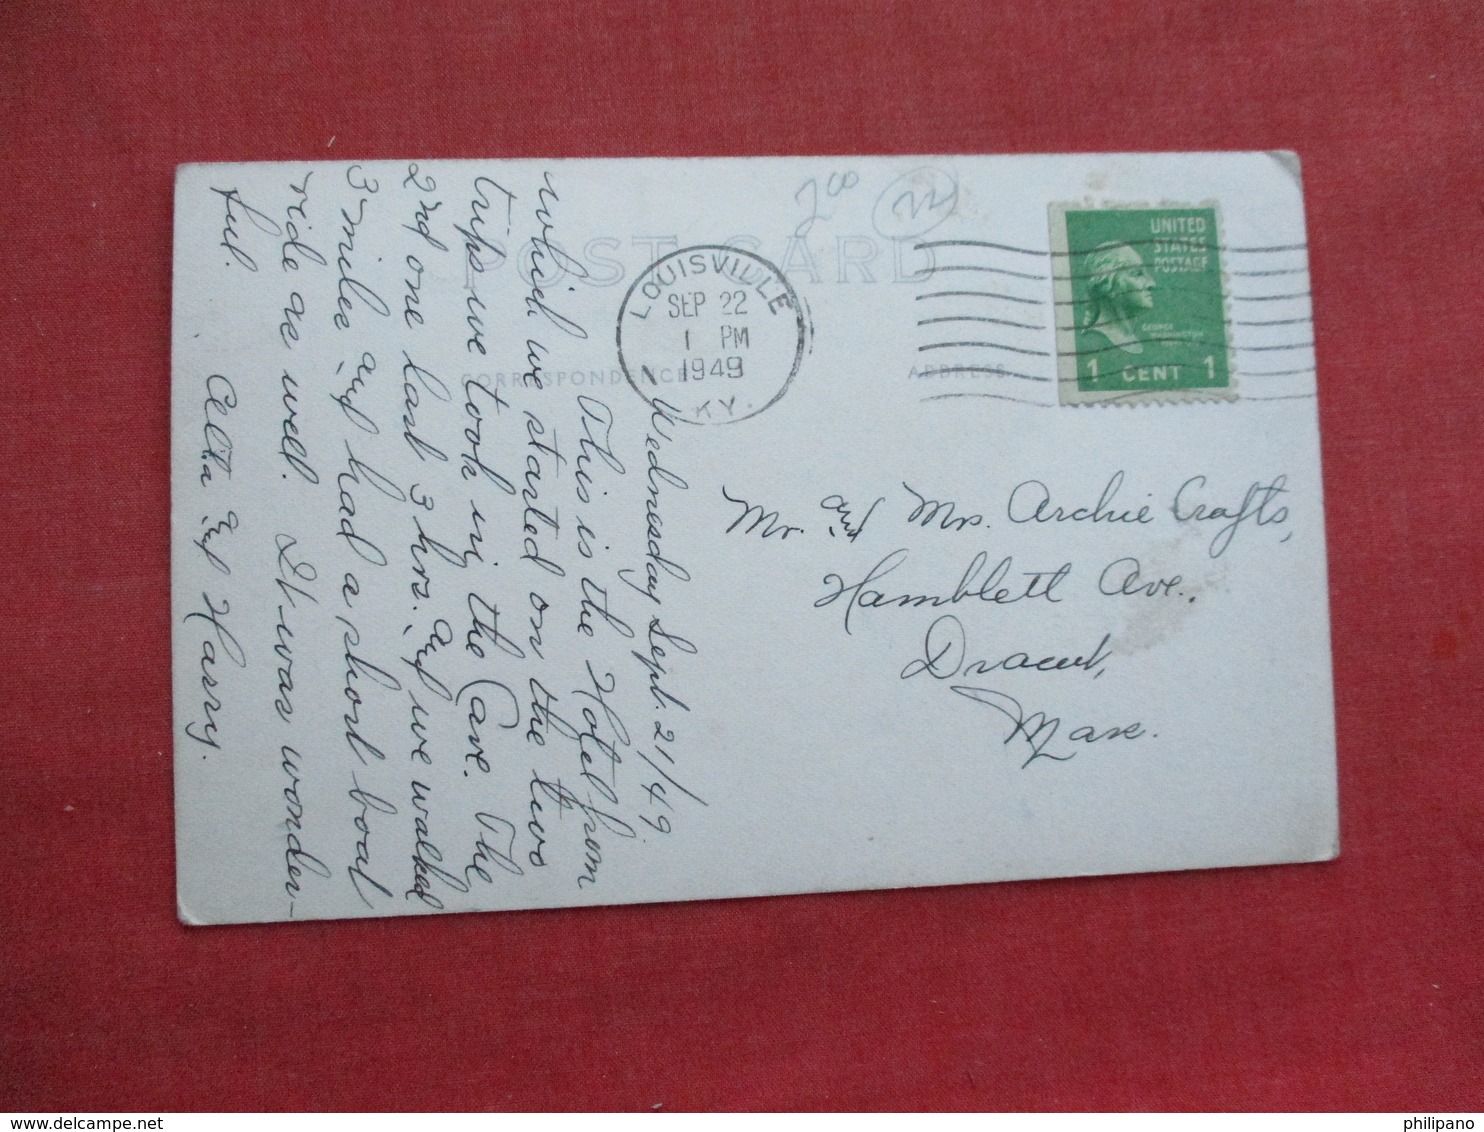 POST CARD
CORRESPONDENCE
ADDRESS
2 00
22
LOUISVILLE
SEP 22
1 PM
1949
KY.
UNITED
STATES
POSTAGE
GEORGE
WASHINGTON
1 CENT 1
Wednesday Sept. 21/49
This is the Hotel from
which we started on the two
trips we took in the Cave. The
2nd one last 3 hrs. and we walked
3 miles and had a short boat
ride as well. It was wonder-
ful.
Celia and Harry.
Mr. and Mrs. Archie Crafts,
Hamblett Ave.,
Dracut,
Mass.
www.delcampe.net
philipano